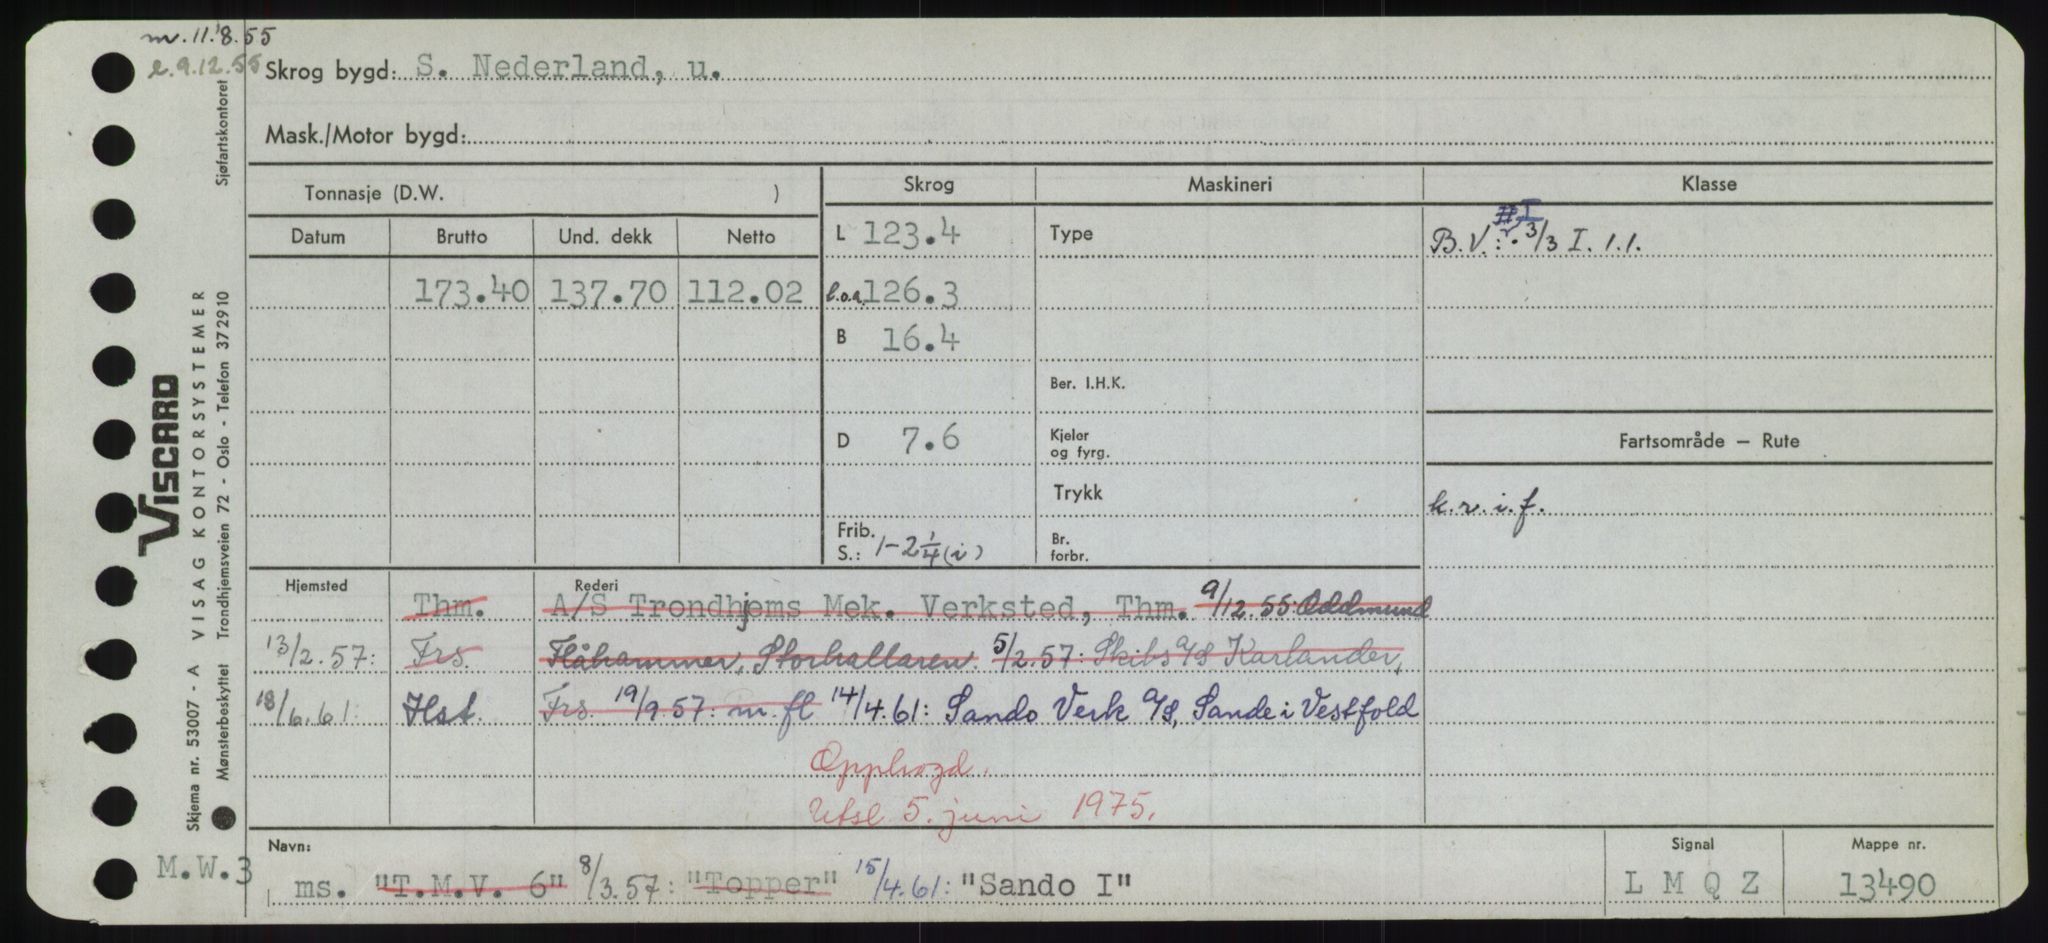 m. 11.8.55
e. 9.12.55
Skrog bygd: S. Nederland, u.
Mask./Motor bygd:
Tonnasje (D.W. )
Skrog
Maskineri
Klasse
Datum Brutto Und. dekk Netto
L 123.4
Type
B.V.: 3/3 I. 1.1.
173.40 137.70 112.02
l.o.a. 126.3
B 16.4
Ber. I.H.K.
D 7.6
Kjeler og fyrg.
Fartsområde — Rute
Trykk
k.v.i.f.
Frib. S.: 1-2 1/4 (i)
Br. forbr.
Hjemsted Rederi
Thm. A/S Trondhjems Mek. Verksted, Thm. 9/12.55: Oddmund
13/2.57: Frs. Flåhammer, Storhallaren. 5/2.57: Skibs A/S Karlander,
18/6.61: Hst. Frs. 19/9.57: m. fl 14/4.61: Sando Verk A/S, Sande i Vestfold
Opphogd.
Utsl 5. juni 1975.
Navn:
Signal
Mappe nr.
ms. "T.M.V. 6" 8/3.57: "Topper" 15/4.61: "Sando I"
L M Q Z
13490
M.W.3
VISCARD
Skjema nr. 53007 - A VISAG KONTORSYSTEMER
Mønsterbeskyttet Trondhjemsveien 72 - Oslo - Telefon 372910 Sjøfartskontoret